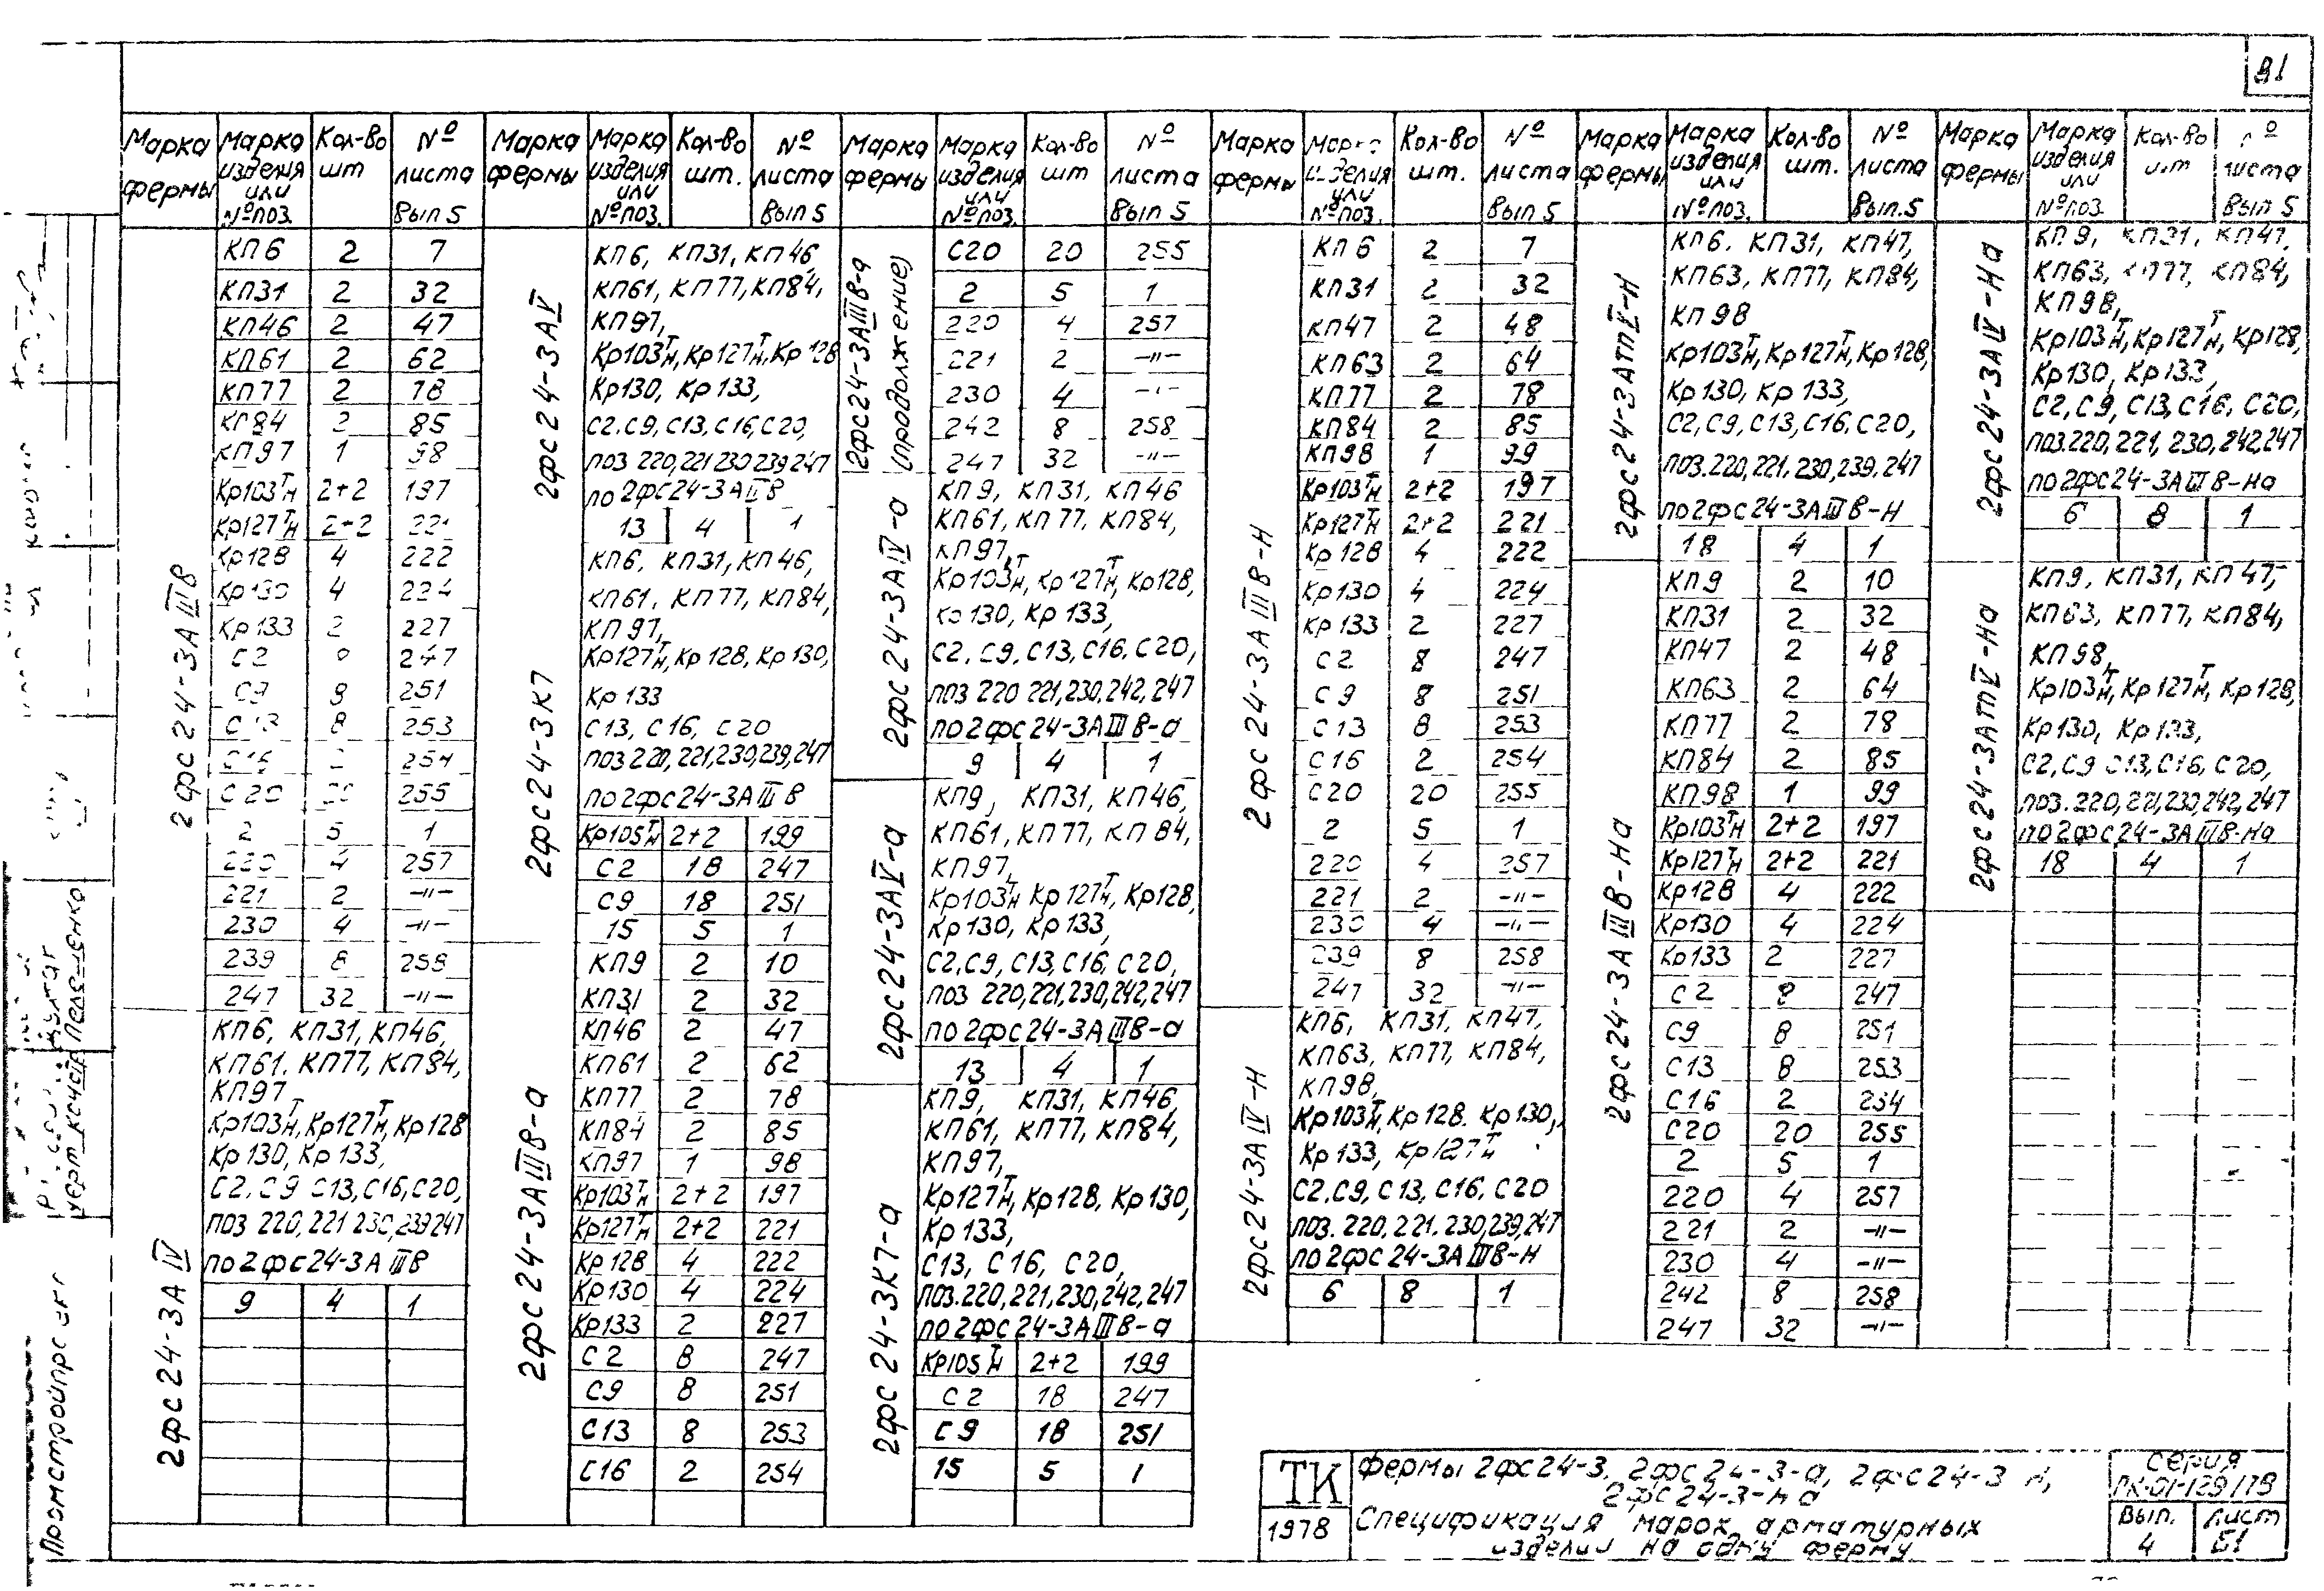 81
Марка фермы | Марка изделия или № поз. | Кол-во шт | № листа Вып 5
2фс24-3АIIIв
КП6 2 7
КП31 2 32
КП46 2 47
КП61 2 62
КП77 2 78
КП84 2 85
КП97 1 98
Кр103тн 2+2 197
Кр127тн 2+2 221
Кр128 4 222
Кр130 4 224
Кр133 2 227
С2 247
С9 8 251
С13 8 253
С16 254
С20 20 255
2 5 1
220 4 257
221 2 -"-
230 4 -"-
239 8 258
247 32 -"-
2фс24-3АIV
КП6, КП31, КП46,
КП61. КП77, КП84,
КП97
Кр103тн, Кр127тн, Кр128
Кр130, Кр133,
С2. С9 С13, С16, С20,
поз 220, 221 230, 239 247
по 2фс24-3АIIIв
9 4 1
Марка фермы | Марка изделия или № поз. | Кол-во шт. | № листа Вып 5
2фс24-3АV
КП6, КП31, КП46
КП61, КП77, КП84,
КП97,
Кр103тн, Кр127тн, Кр128
Кр130, Кр133,
С2. С9, С13, С16, С20,
поз 220, 221 230 239 247
по 2фс24-3АIIIв
13 4 1
2фс24-3К7
КП6, КП31, КП46,
КП61. КП77, КП84,
КП97,
Кр127тн, Кр128, Кр130,
Кр133
С13, С16, С20
поз 220, 221, 230, 239, 247
по 2фс24-3АIIIв
Кр105тн 2+2 199
С2 18 247
С9 18 251
15 5 1
2фс24-3АIIIв-а
КП9 2 10
КП31 2 32
КП46 2 47
КП61 2 62
КП77 2 78
КП84 2 85
КП97 1 98
Кр103тн 2+2 197
Кр127тн 2+2 221
Кр128 4 222
Кр130 4 224
Кр133 2 227
С2 8 247
С9 8 251
С13 8 253
С16 2 254
Марка фермы | Марка изделия или № поз. | Кол-во шт | № листа Вып 5
2фс24-3АIIIв-а (продолжение)
С20 20 255
2 5 1
220 4 257
221 2 -"-
230 4 -"-
242 8 258
247 32 -"-
2фс24-3АIV-а
КП9, КП31, КП46
КП61, КП77, КП84,
КП97,
Кр103тн, Кр127тн, Кр128,
Кр130, Кр133,
С2. С9, С13, С16. С20,
поз 220 221, 230, 242, 247
по 2фс24-3АIIIв-а
9 4 1
2фс24-3АV-а
КП9, КП31, КП46,
КП61, КП77, КП84,
КП97,
Кр103тн Кр127тн, Кр128,
Кр130, Кр133,
С2. С9, С13, С16, С20,
поз 220, 221, 230, 242, 247
по 2фс24-3АIIIв-а
13 4 1
2фс24-3К7-а
КП9, КП31, КП46,
КП61, КП77, КП84,
КП97,
Кр127тн, Кр128, Кр130,
Кр133,
С13, С16, С20,
поз. 220, 221, 230, 242, 247
по 2фс24-3АIIIв-а
Кр105тн 2+2 199
С2 18 247
С9 18 251
15 5 1
Марка фермы | Марка изделия или № поз. | Кол-во шт. | № листа Вып 5
2фс24-3АIIIв-н
КП6 2 7
КП31 2 32
КП47 2 48
КП63 2 64
КП77 2 78
КП84 2 85
КП98 1 99
Кр103тн 2+2 197
Кр127тн 2+2 221
Кр128 4 222
Кр130 4 224
Кр133 2 227
С2 8 247
С9 8 251
С13 8 253
С16 2 254
С20 20 255
2 5 1
220 4 257
221 2 -"-
230 4 -"-
239 8 258
247 32 -"-
2фс24-3АIV-н
КП6, КП31, КП47,
КП63, КП77, КП84,
КП98,
Кр103тн, Кр128. Кр130,
Кр133, Кр127тн
С2. С9, С13, С16, С20
поз. 220, 221. 230, 239, 247
по 2фс24-3АIIIв-н
6 8 1
Марка фермы | Марка изделия или № поз. | Кол-во шт. | № листа Вып. 5
2фс24-3АтпV-н
КП6. КП31, КП47,
КП63, КП77, КП84,
КП98
Кр103тн, Кр127тн, Кр128,
Кр130, Кр133,
С2, С9, С13, С16, С20,
поз. 220, 221. 230, 239, 247
по 2фс24-3АIIIв-н
18 4 1
2фс24-3АIIIв-на
КП9 2 10
КП31 2 32
КП47 2 48
КП63 2 64
КП77 2 78
КП84 2 85
КП98 1 99
Кр103тн 2+2 197
Кр127тн 2+2 221
Кр128 4 222
Кр130 4 224
Кр133 2 227
С2 8 247
С9 8 251
С13 8 253
С16 2 254
С20 20 255
2 5 1
220 4 257
221 2 -"-
230 4 -"-
242 8 258
247 32 -"-
Марка фермы | Марка изделия или № поз. | Кол-во шт | № листа Вып 5
2фс24-3АIV-на
КП9, КП31, КП47,
КП63, КП77, КП84,
КП98,
Кр103тн, Кр127тн, Кр128,
Кр130, Кр133,
С2, С9, С13, С16, С20,
поз. 220, 221, 230, 242, 247
по 2фс24-3АIIIв-на
6 8 1
2фс24-3АтпV-на
КП9, КП31, КП47,
КП63, КП77, КП84,
КП98,
Кр103тн, Кр127тн, Кр128,
Кр130, Кр133,
С2, С9 С13, С16, С20,
поз. 220, 221, 230, 242, 247
по 2фс24-3АIIIв-на
18 4 1
ТК
1978
Фермы 2фс24-3, 2фс24-3-а, 2фс24-3 н,
2фс24-3-на
Спецификация марок арматурных
изделий на одну ферму
Серия
ПК-01-129/78
Вып. 4
Лист 51
Промстройпроект